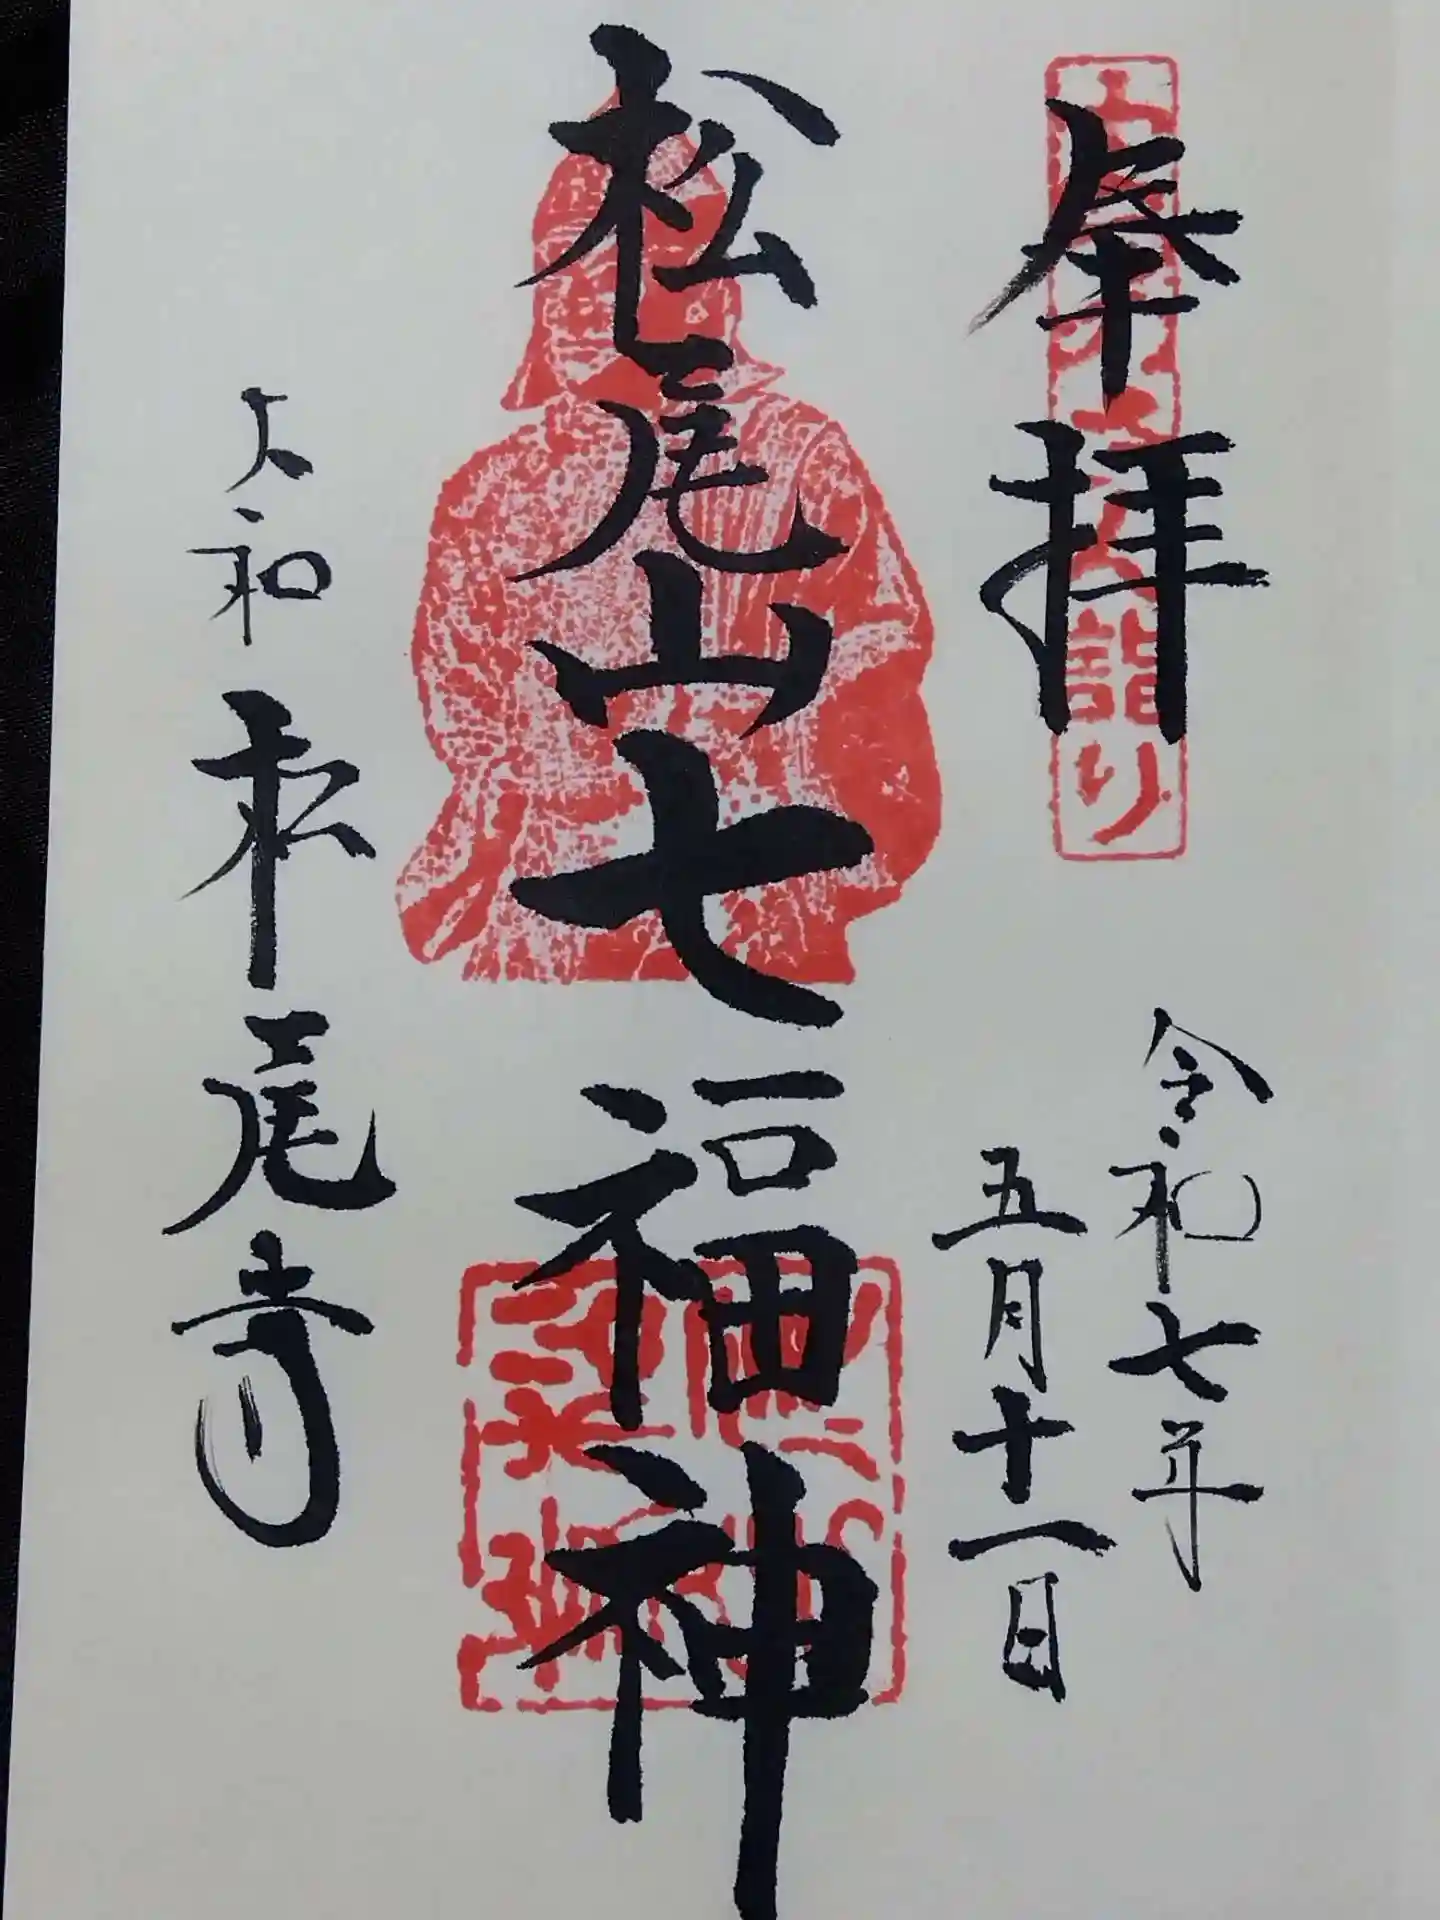 奉拝
詣り
令和七年
五月十一日
松尾山七福神
大和
松尾寺